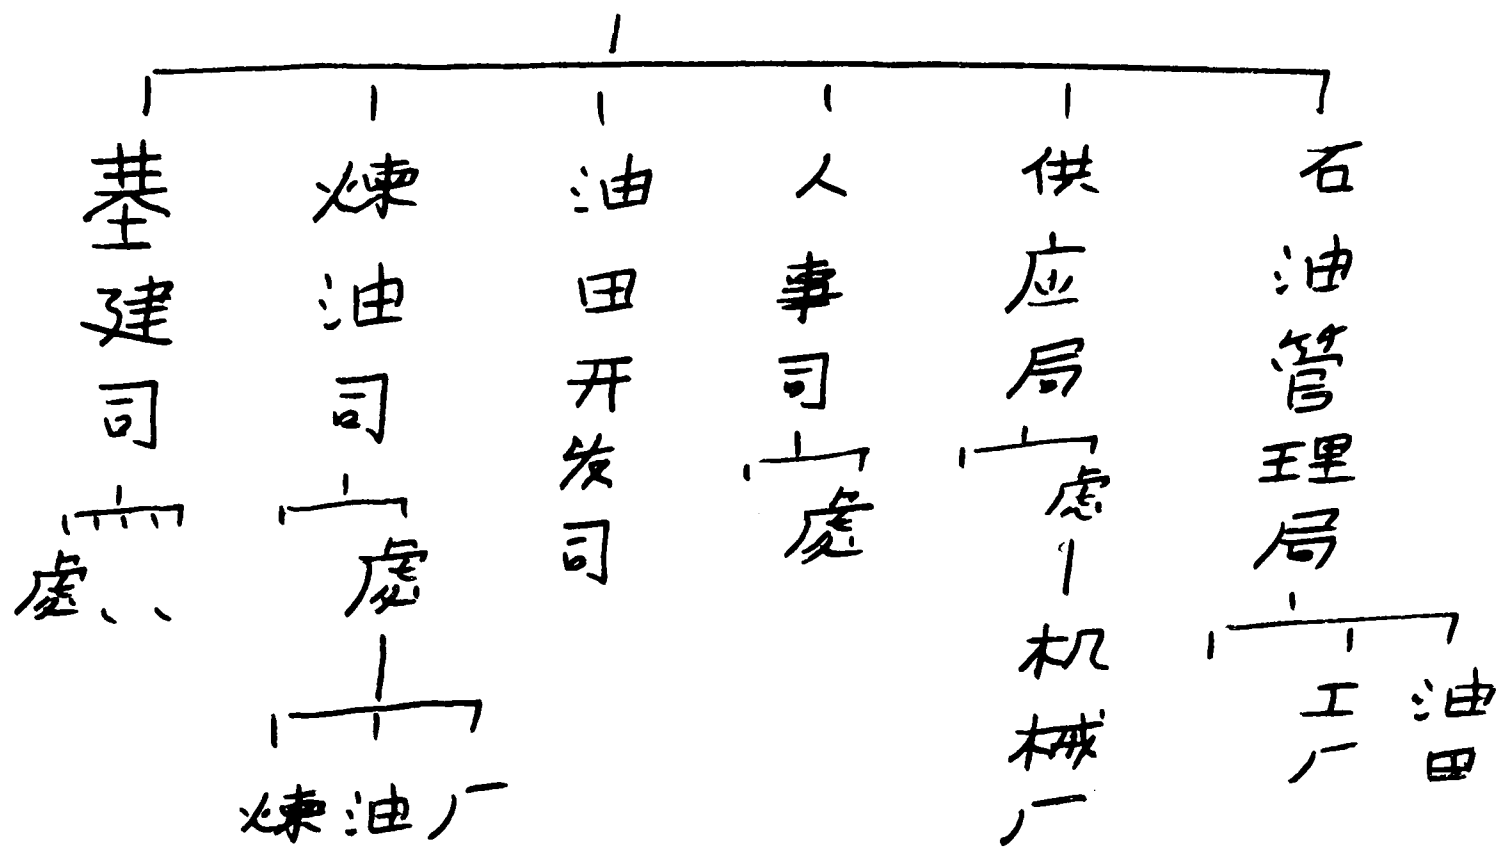 基建司
處、、
煉油司
處
煉油厂
油田开发司
人事司
處
供应局
處
机械厂
石油管理局
工厂
油田